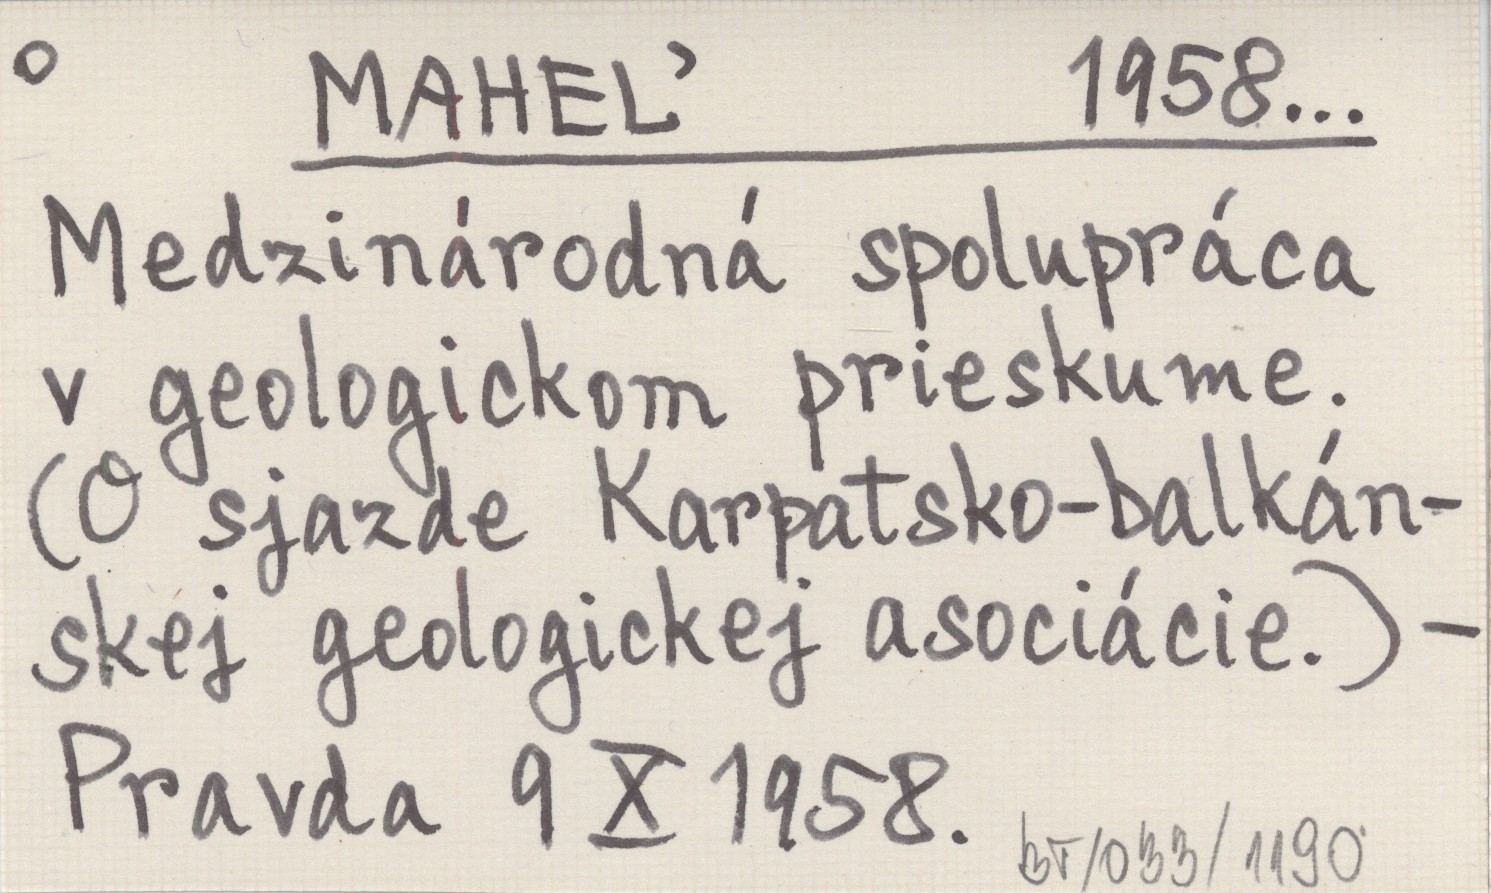 ° MAHEĽ 1958...
Medzinárodná spolupráca
v geologickom prieskume.
(O sjazde Karpatsko-balkán-
skej geologickej asociácie.) -
Pravda 9 X 1958.
/033/1190